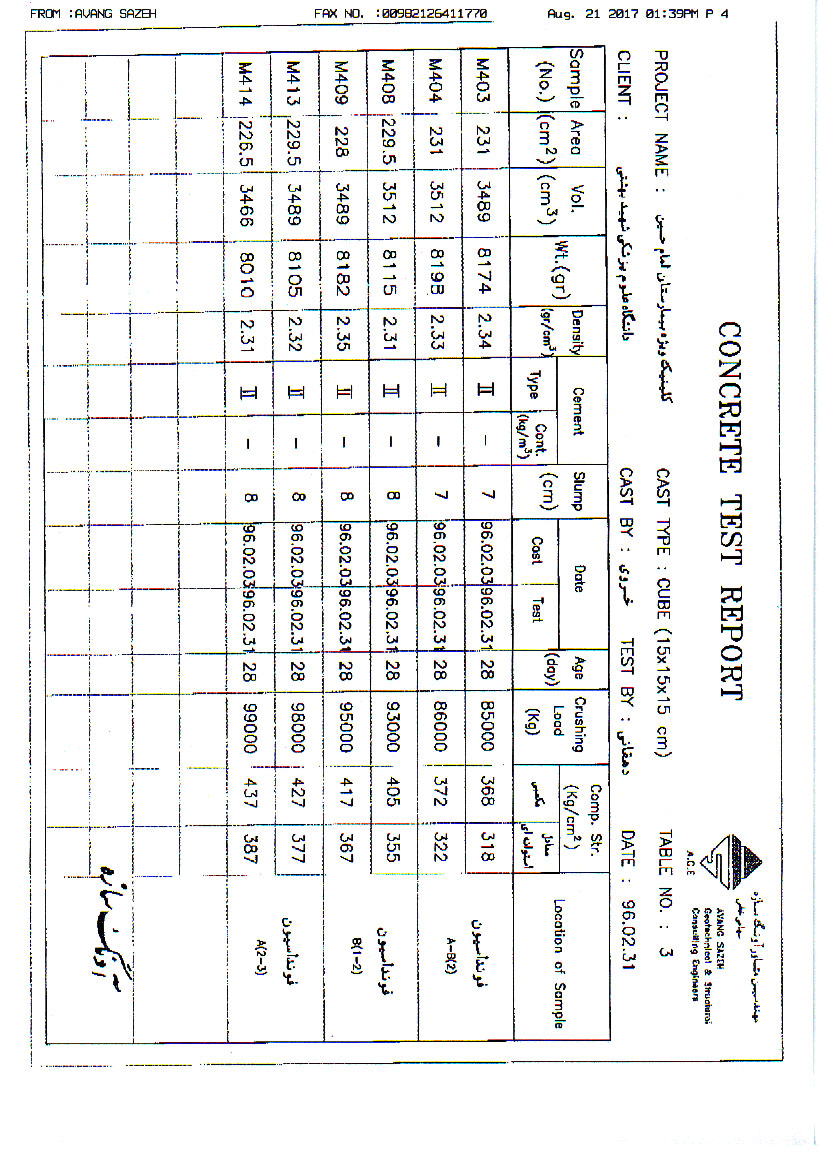 FROM :AVANG SAZEH FAX NO. :00982126411770 Aug. 21 2017 01:39PM P 4
CONCRETE TEST REPORT
مهندسین مشاور آونگ سازه
AVANG SAZEH
Geotechnical & Structural
Consulting Engineers
A.G.E
PROJECT NAME : کلینیک ویژه بیمارستان امام حسین CAST TYPE : CUBE (15x15x15 cm) TABLE NO. : 3
CLIENT : دانشگاه علوم پزشکی شهید بهشتی CAST BY : TEST BY : دهقانی DATE : 96.02.31
Sample (No.) Area (cm²) Vol. (cm³) Wt.(gr) Density (gr/cm³) Cement Type Cont. (kg/m³) Slump (cm) Date Cast Test Age (day) Crushing Load (Kg) Comp. Str. (Kg/cm²) مکعبی معادل استوانه ای Location of Sample
M403 231 3489 8174 2.34 II - 7 96.02.03 96.02.31 28 85000 368 318
M404 231 3512 8198 2.33 II - 7 96.02.03 96.02.31 28 86000 372 322
فونداسیون
A-B(2)
M408 229.5 3512 8115 2.31 II - 8 96.02.03 96.02.31 28 93000 405 355
M409 228 3489 8182 2.35 II - 8 96.02.03 96.02.31 28 95000 417 367
فونداسیون
B(1-2)
M413 229.5 3489 8105 2.32 II - 8 96.02.03 96.02.31 28 98000 427 377
M414 226.5 3466 8010 2.31 II - 8 96.02.03 96.02.31 28 99000 437 387
فونداسیون
A(2-3)
آونگ سازه